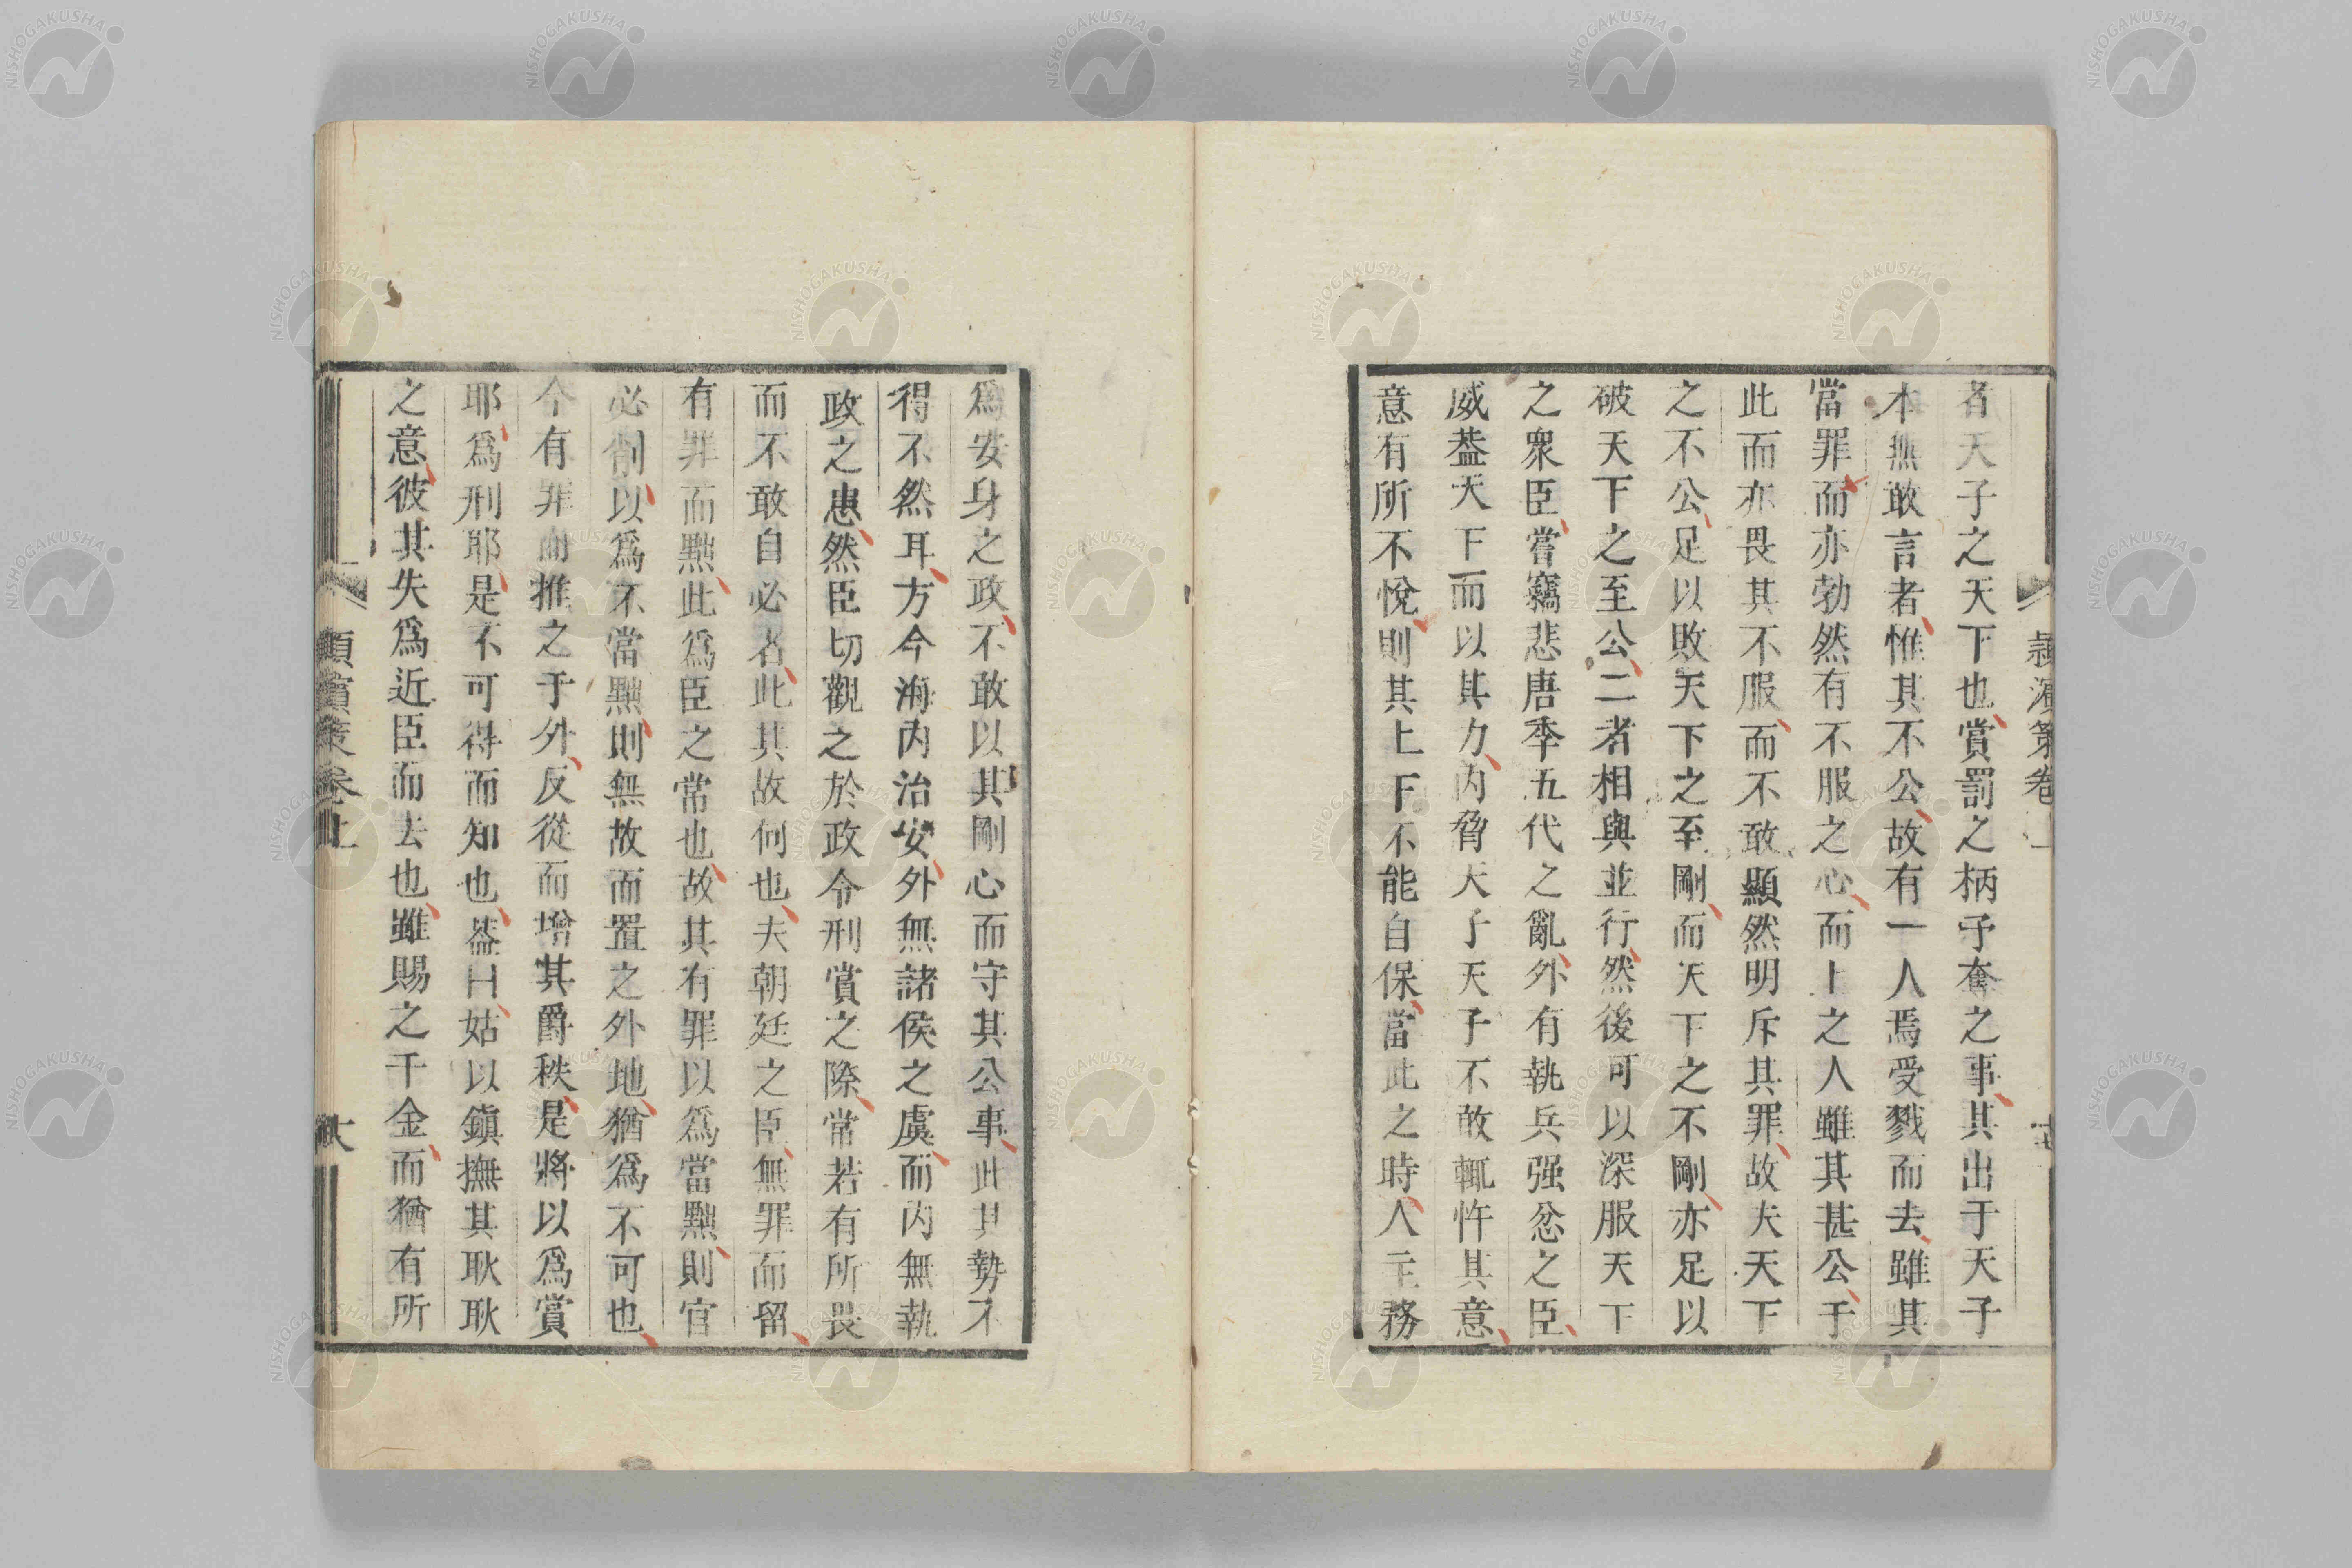 者天子之天下也賞罰之柄予奪之事其出于天子
本無敢言者惟其不公故有一人焉受戮而去雖其
當罪而亦勃然有不服之心而上之人雖其甚公于
此而亦畏其不服而不敢顯然明斥其罪故夫天下
之不公足以敗天下之至剛而天下之不剛亦足以
破天下之至公二者相與並行然後可以深服天下
之衆臣嘗竊悲唐季五代之亂外有執兵强忿之臣
威葢天下而以其力內脅天子天子不敢輒忤其意
意有所不悅則其上下不能自保當此之時人主務
爲安身之政不敢以其剛心而守其公事此其勢不
得不然耳方今海內治安外無諸侯之虞而內無執
政之患然臣切觀之於政令刑賞之際常若有所畏
而不敢自必者此其故何也夫朝廷之臣無罪而留
有罪而黜此爲臣之常也故其有罪以爲當黜則官
必削以爲不當黜則無故而置之外地猶爲不可也
今有罪而推之于外反從而增其爵秩是將以爲賞
耶爲刑耶是不可得而知也葢曰姑以鎭撫其耿耿
之意彼其失爲近臣而去也雖賜之千金而猶有所
潁濱策卷上
六
NISHOGAKUSHA